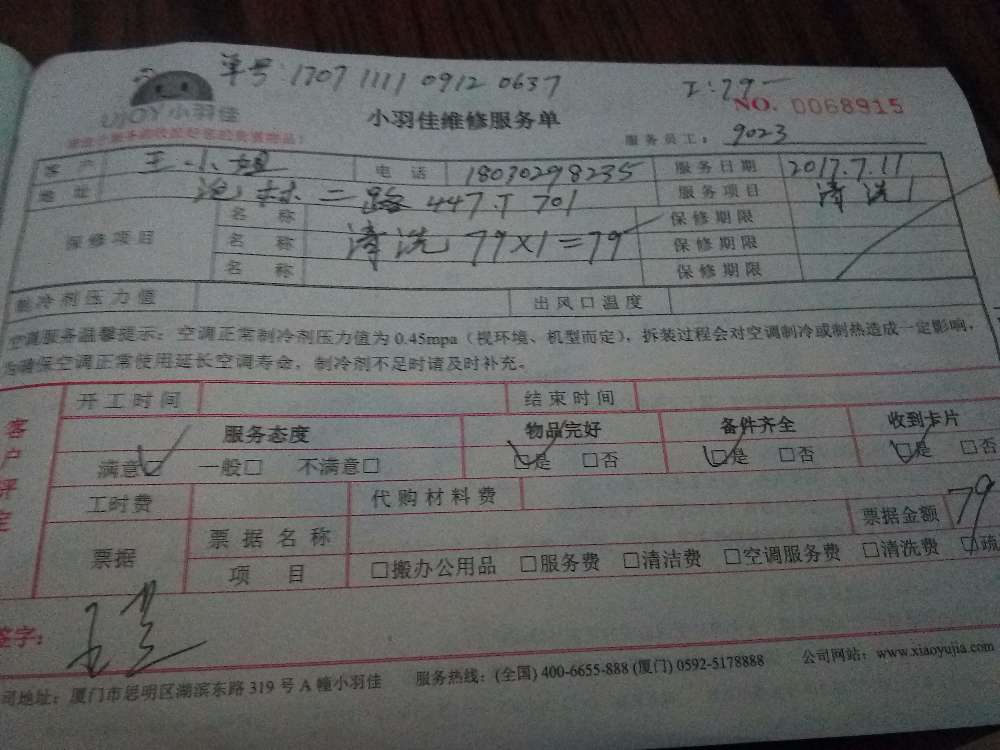 单号:1707 1111 0912 0637
工:79
UJOY小羽佳
NO. 0068915
小羽佳维修服务单
服务员工: 9023
客户 王小姐 电话 18030298235 服务日期 2017.7.11
地址 林二路447.1 701 服务项目 清洗1
保修项目 名称 保修期限
名称 清洗 79×1=79 保修期限
名称 保修期限
制冷剂压力值 出风口温度
空调服务温馨提示:空调正常制冷剂压力值为0.45mpa(视环境、机型而定),拆装过程会对空调制冷或制热造成一定影响,
为确保空调正常使用延长空调寿命,制冷剂不足时请及时补充。
客户评定
开工时间 结束时间
服务态度 物品完好 备件齐全 收到卡片
满意☑ 一般□ 不满意□ ☑是 □否 ☑是 □否 ☑是 □否
工时费 代购材料费
票据 票据名称 票据金额 79
项目 □搬办公用品 □服务费 □清洁费 □空调服务费 □清洗费 ☑疏
签字:
司地址:厦门市思明区湖滨东路319号A幢小羽佳 服务热线:(全国) 400-6655-888 (厦门) 0592-5178888 公司网站:www.xiaoyujia.com